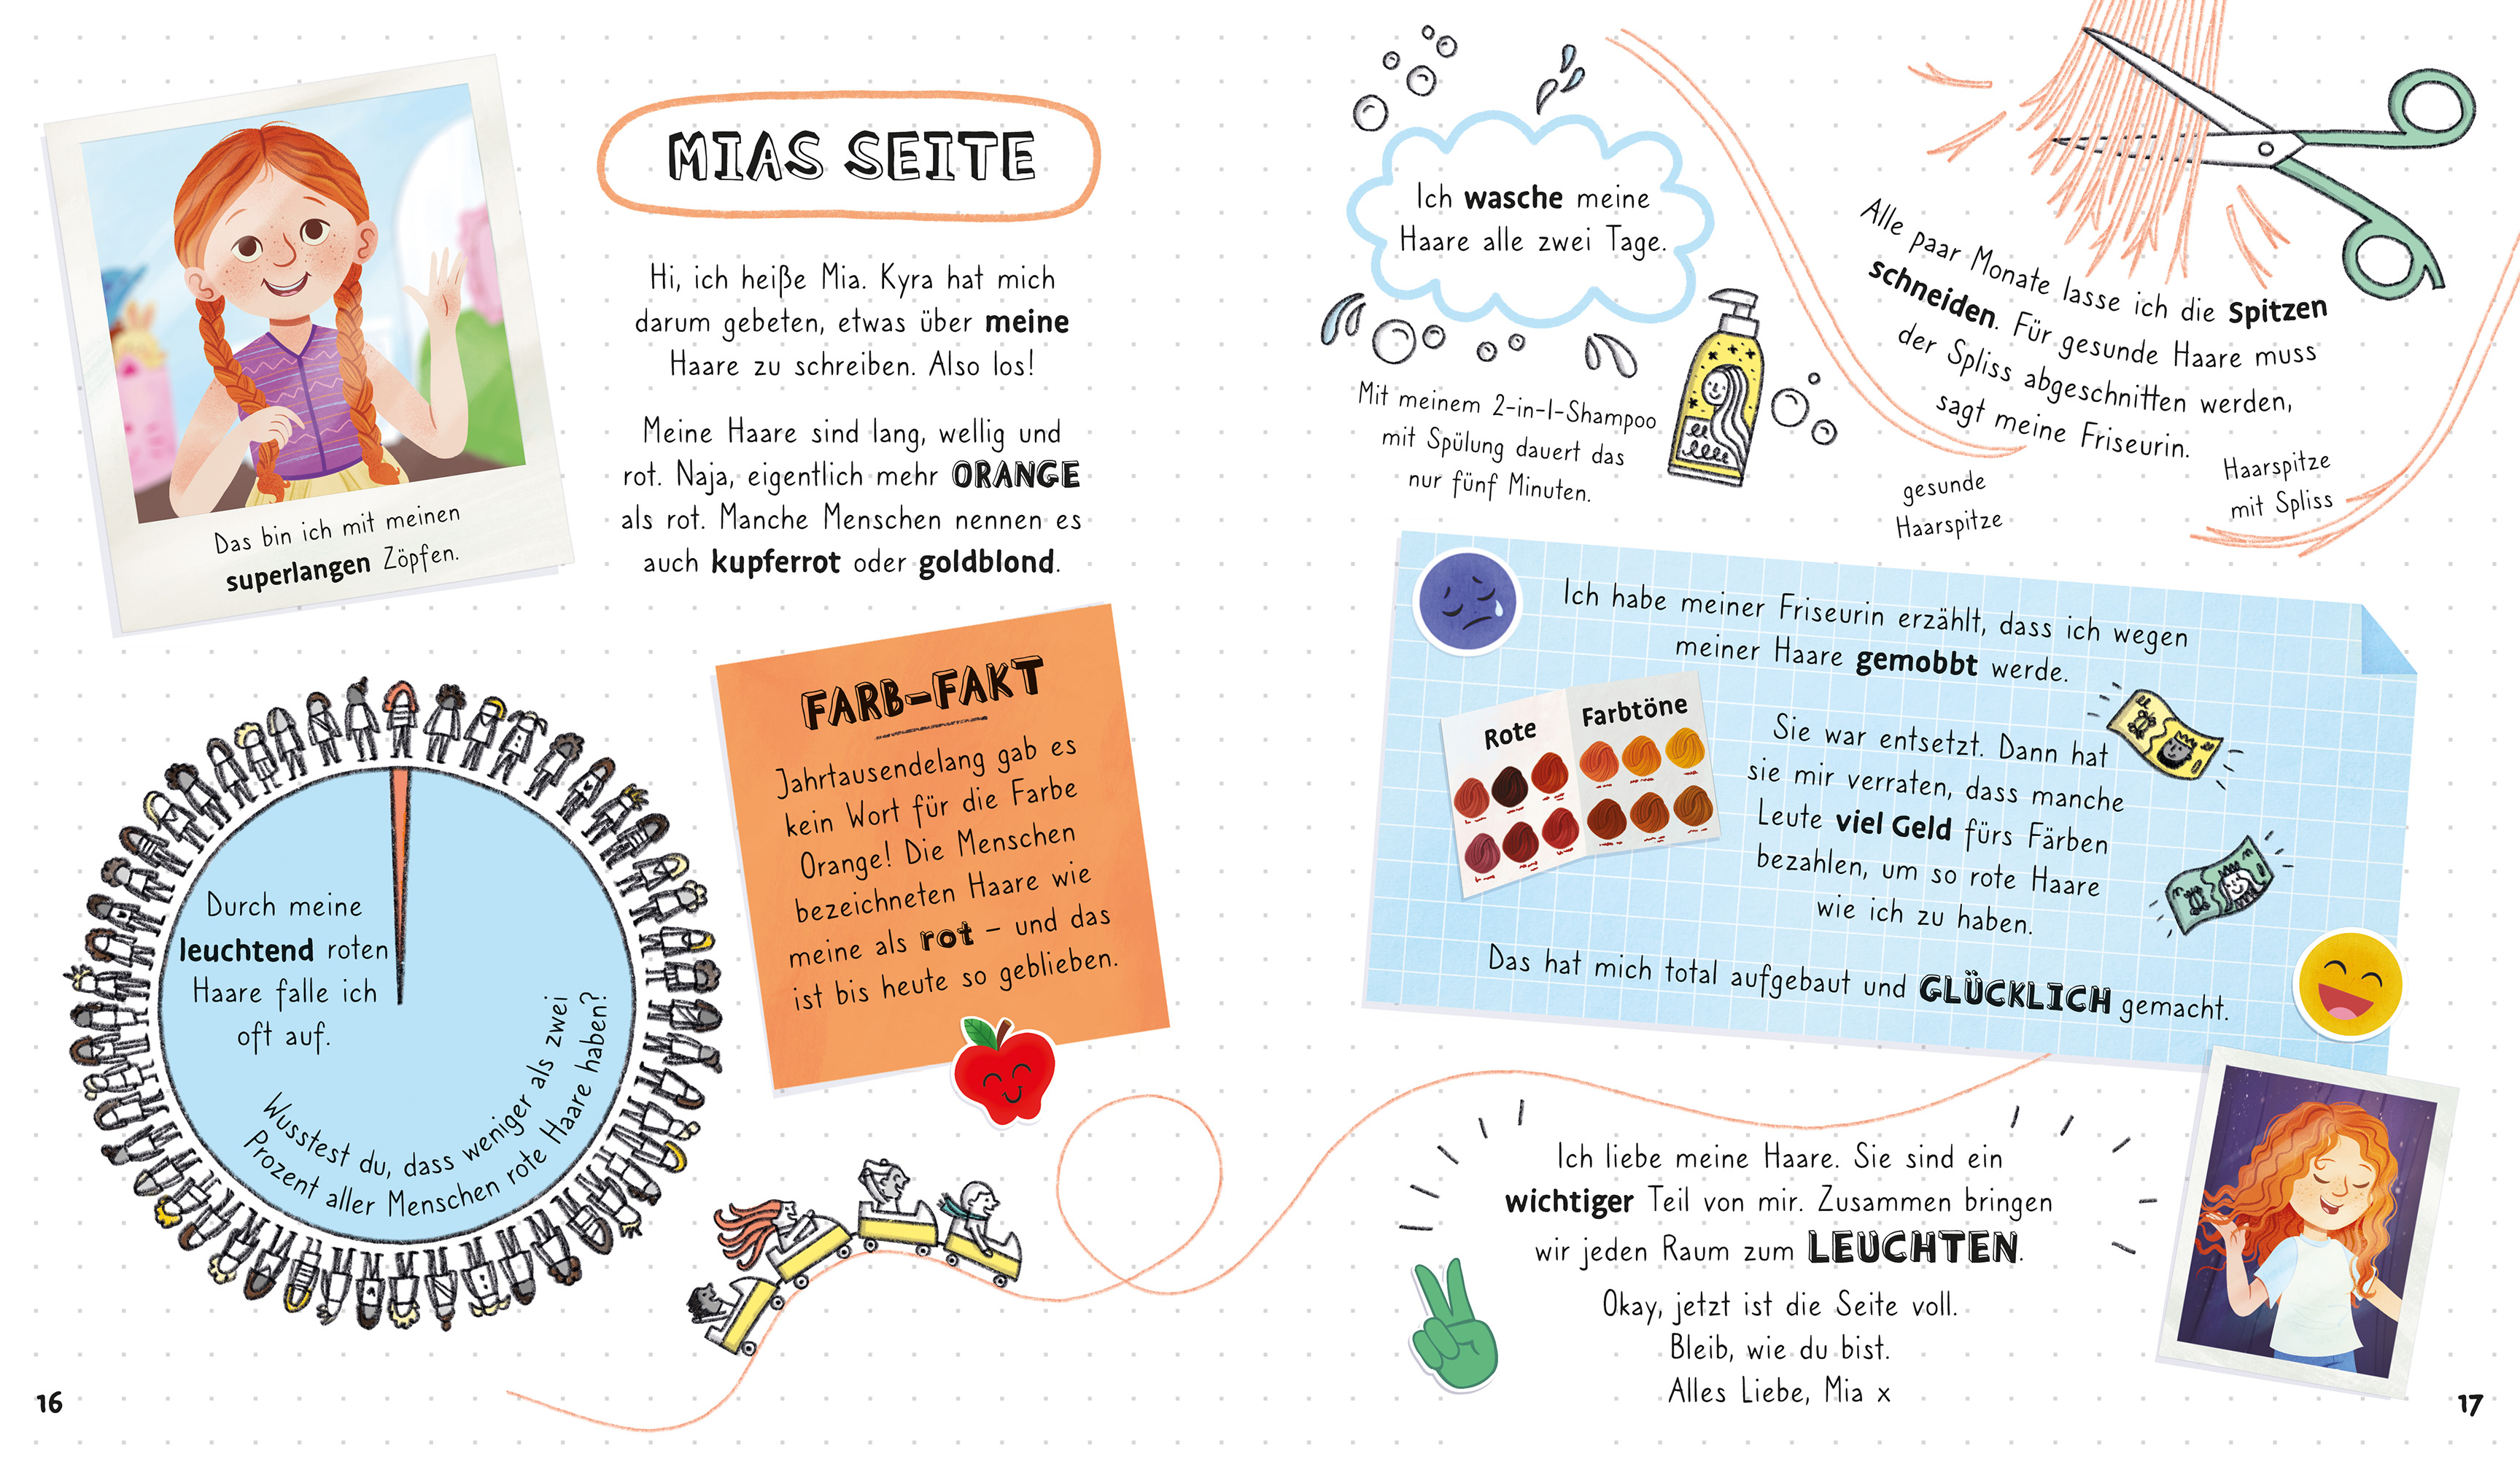 MIAS SEITE
Hi, ich heiße Mia. Kyra hat mich
darum gebeten, etwas über meine
Haare zu schreiben. Also los!
Meine Haare sind lang, wellig und
rot. Naja, eigentlich mehr ORANGE
als rot. Manche Menschen nennen es
auch kupferrot oder goldblond.
Das bin ich mit meinen
superlangen Zöpfen.
Durch meine
leuchtend roten
Haare falle ich
oft auf.
Wusstest du, dass weniger als zwei
Prozent aller Menschen rote Haare haben?
FARB-FAKT
Jahrtausendelang gab es
kein Wort für die Farbe
Orange! Die Menschen
bezeichneten Haare wie
meine als rot – und das
ist bis heute so geblieben.
16
Ich wasche meine
Haare alle zwei Tage.
Mit meinem 2-in-1-Shampoo
mit Spülung dauert das
nur fünf Minuten.
Alle paar Monate lasse ich die Spitzen
schneiden. Für gesunde Haare muss
der Spliss abgeschnitten werden,
sagt meine Friseurin.
gesunde
Haarspitze
Haarspitze
mit Spliss
Ich habe meiner Friseurin erzählt, dass ich wegen
meiner Haare gemobbt werde.
Rote Farbtöne
Sie war entsetzt. Dann hat
sie mir verraten, dass manche
Leute viel Geld fürs Färben
bezahlen, um so rote Haare
wie ich zu haben.
Das hat mich total aufgebaut und GLÜCKLICH gemacht.
Ich liebe meine Haare. Sie sind ein
wichtiger Teil von mir. Zusammen bringen
wir jeden Raum zum LEUCHTEN.
Okay, jetzt ist die Seite voll.
Bleib, wie du bist.
Alles Liebe, Mia x
17